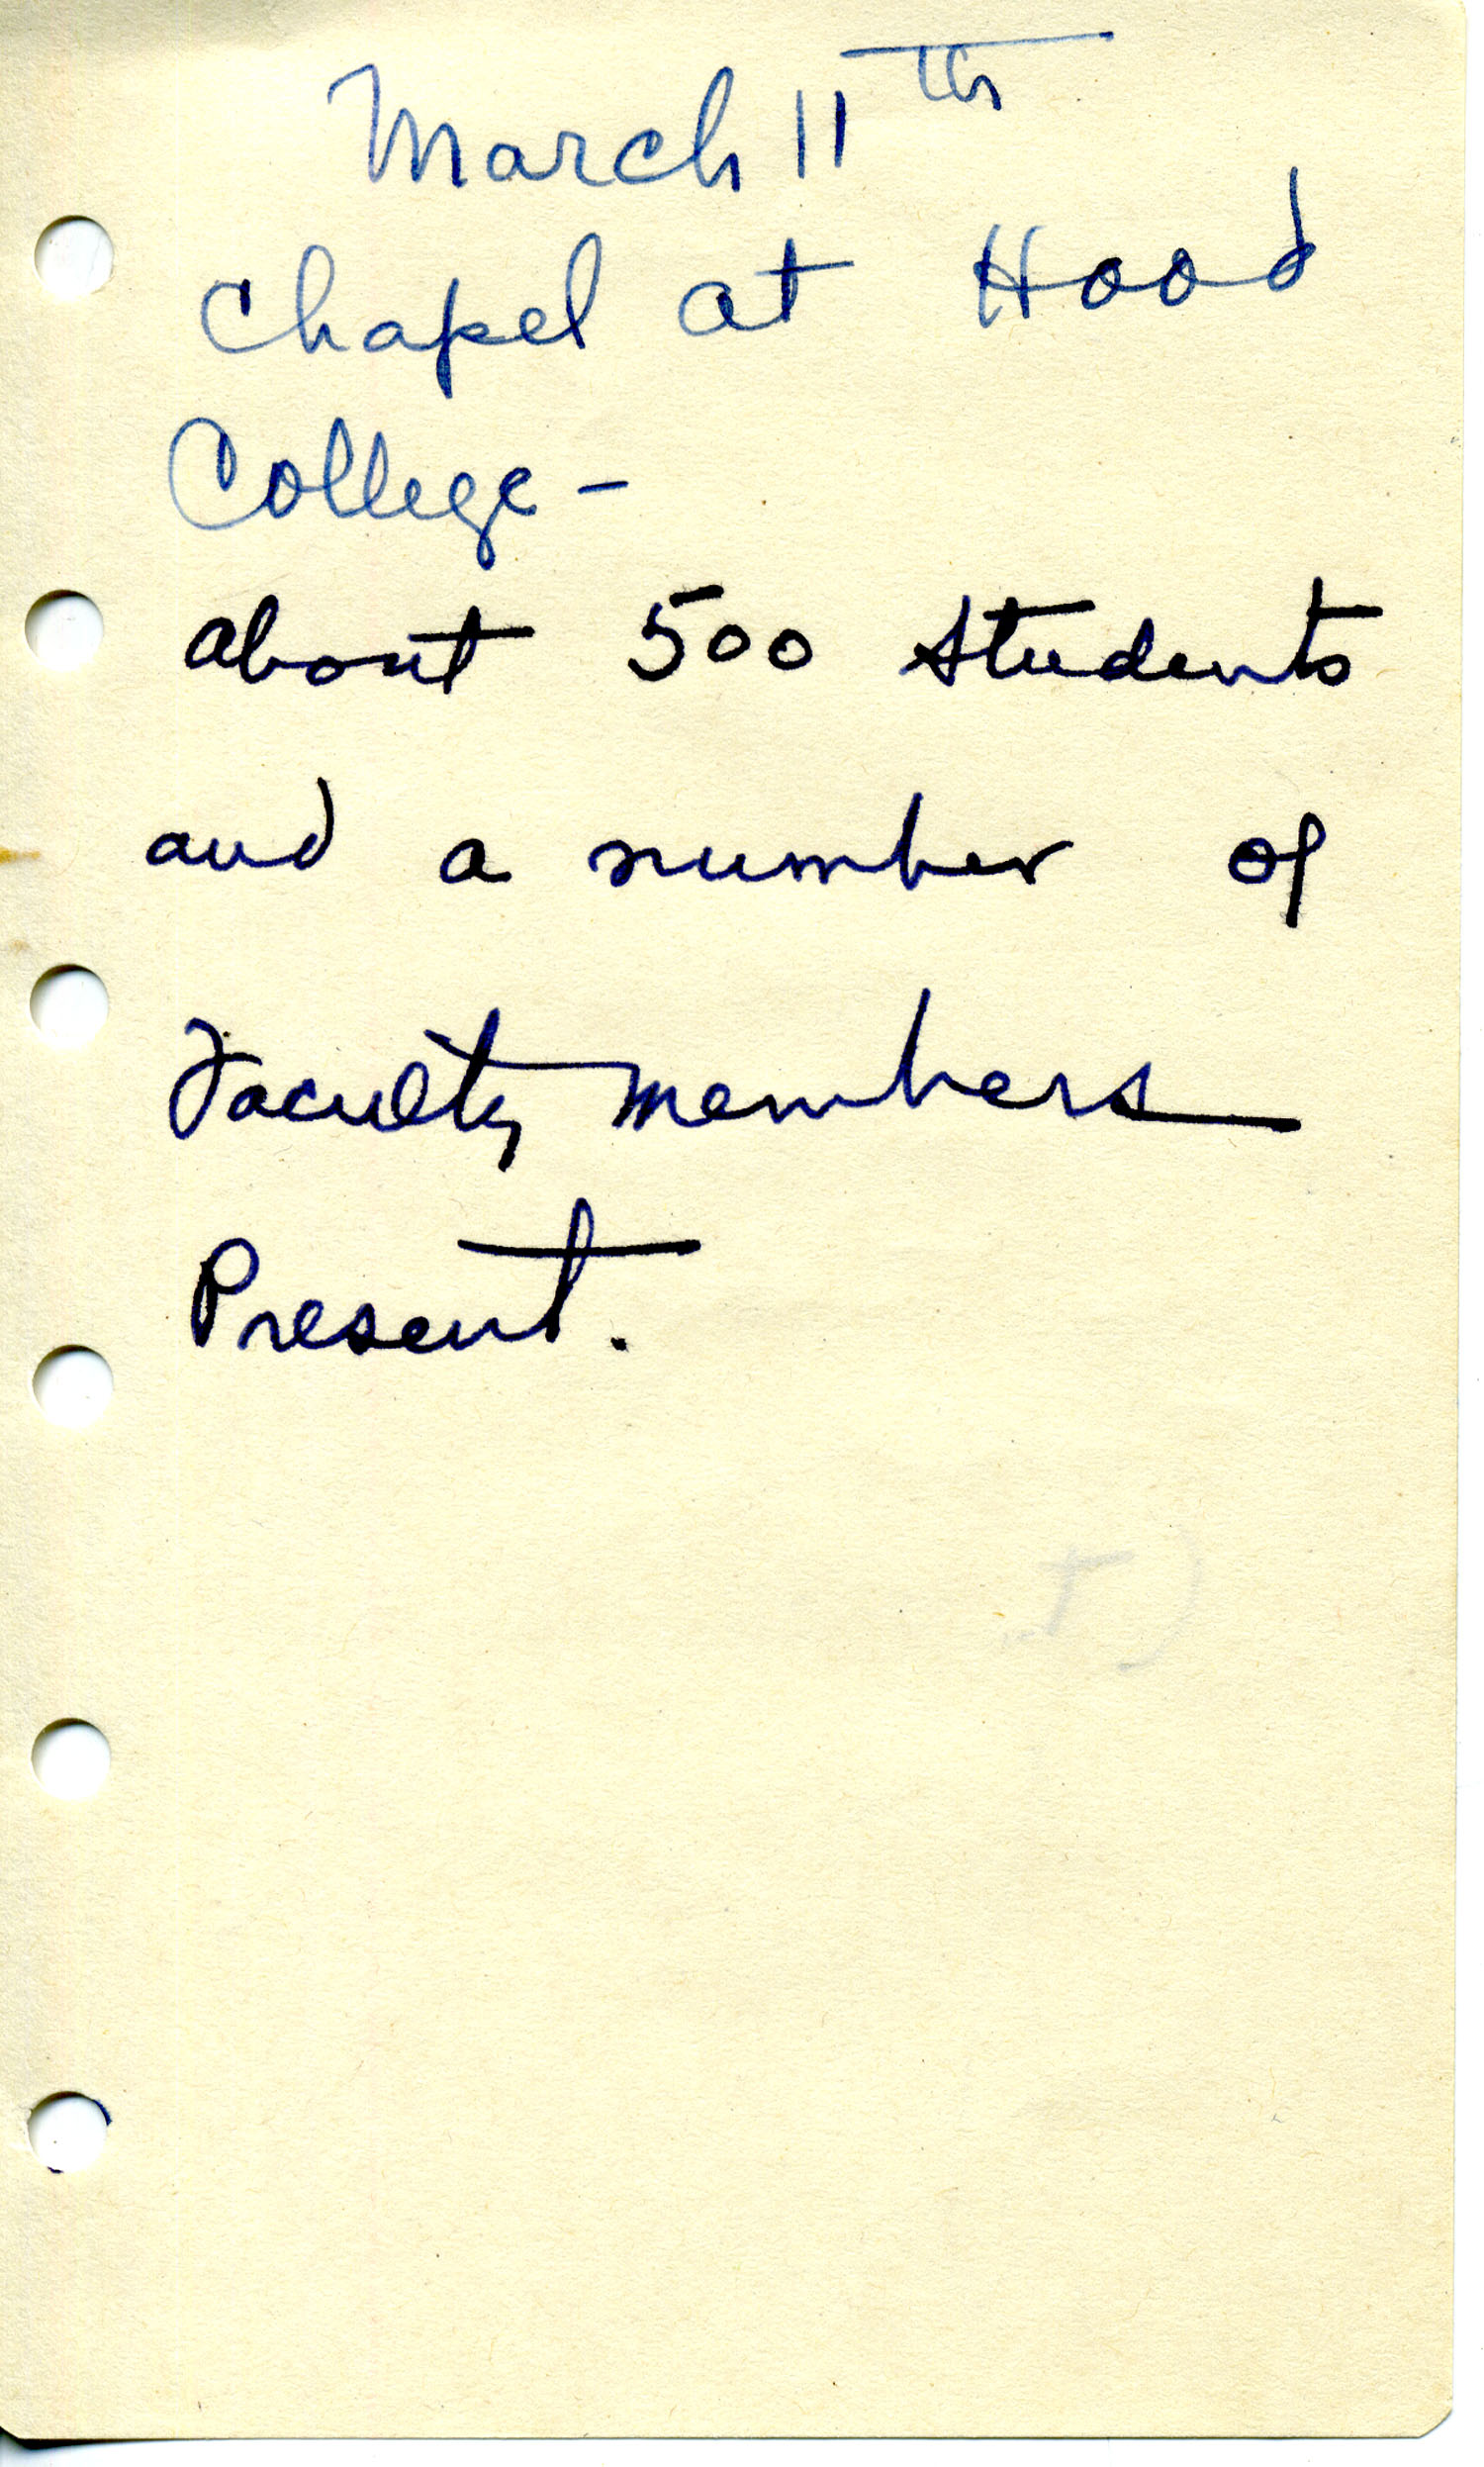 March 11th
Chapel at Hood
College -
about 500 students
and a number of
Faculty members
Present.